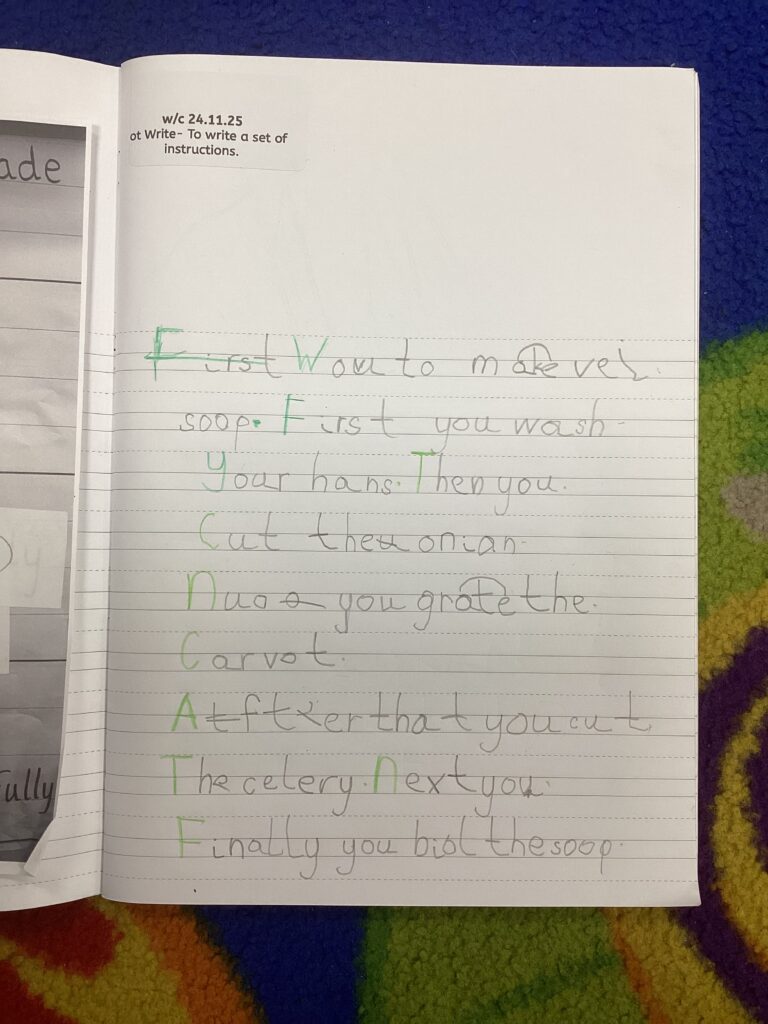 ade
ully
w/c 24.11.25
ot Write- To write a set of
instructions.
First Wou to make vej.
soop. First you wash
Your hans. Then you.
Cut the onian.
Nuo you grate the.
Carvot.
Aftxer that you cut
The celery. Next you.
Finally you biol the soop.